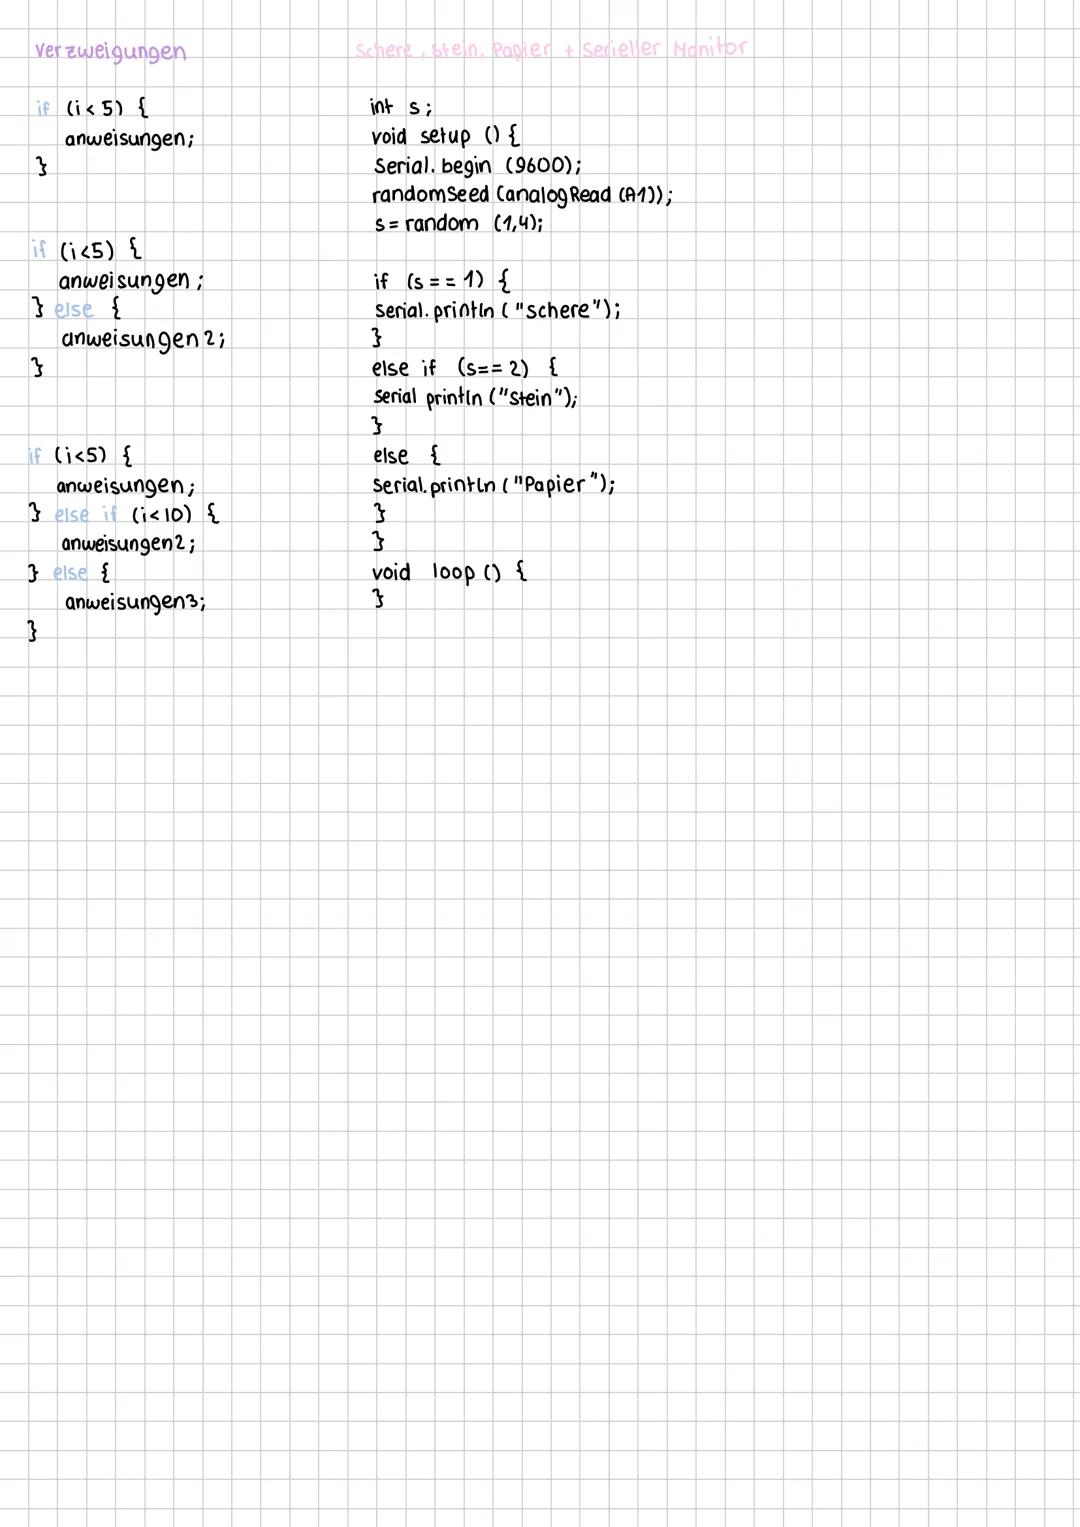 Verzweigungen
if (i<5) {
anweisungen;
}
if (i<5) {
anweisungen;
} else {
anweisungen2;
}
if (i<5) {
anweisungen;
} else if (i<10) {
anweisungen2;
} else {
anweisungen3;
}
Schere, Stein, Papier + Serieller Monitor
int s;
void setup () {
Serial.begin (9600);
randomSeed (analogRead (A1));
s = random (1,4);
if (s == 1) {
serial.println ("schere");
}
else if (s == 2) {
serial println ("Stein");
}
else {
serial.println ("Papier");
}
}
void loop () {
}